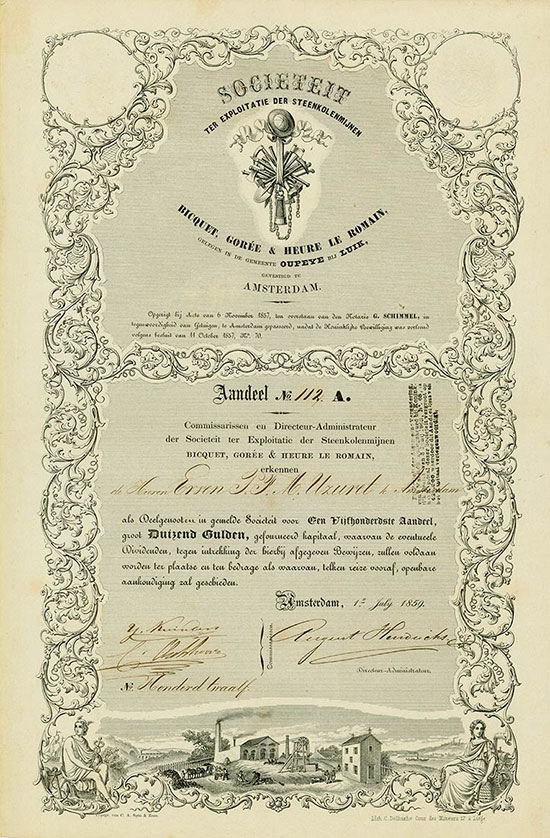 SOCIETEIT
TER EXPLOITATIE DER STEENKOLENMIJNEN
BICQUET, GORÉE & HEURE LE ROMAIN,
GELEGEN IN DE GEMEENTE OUPEYE BIJ LUIK,
GEVESTIGD TE
AMSTERDAM.
Opgerigt bij Acte van 6 November 1857, ten overstaan van den Notaris G. SCHIMMEL, in
tegenwoordigheid van Getuigen, te Amsterdam gepasseerd, nadat de Koninklijke Bewilliging was verleend
volgens besluit van 11 October 1857, No. 70.
Aandeel No. 112 A.
Commissarissen en Directeur-Administrateur
der Societeit ter Exploitatie der Steenkolenmijnen
BICQUET, GORÉE & HEURE LE ROMAIN,
erkennen
de Heeren Erven te Amsterdam
als Deelgenooten in gemelde Societeit voor Een Vijfhonderdste Aandeel,
groot Duizend Gulden, gefourneerd kapitaal, waarvan de eventueele
Dividenden, tegen intrekking der hierbij afgegeven Bewijzen, zullen voldaan
worden ter plaatse en ten bedrage als waarvan, telken reize vooraf, openbare
aankondiging zal geschieden.
Amsterdam, 1e July 1859.
Commissarissen.
August Hendrichs
Directeur-Administrateur.
No. Honderd twaalf
Lith. C. Delhache Cour des Mineurs à Liège